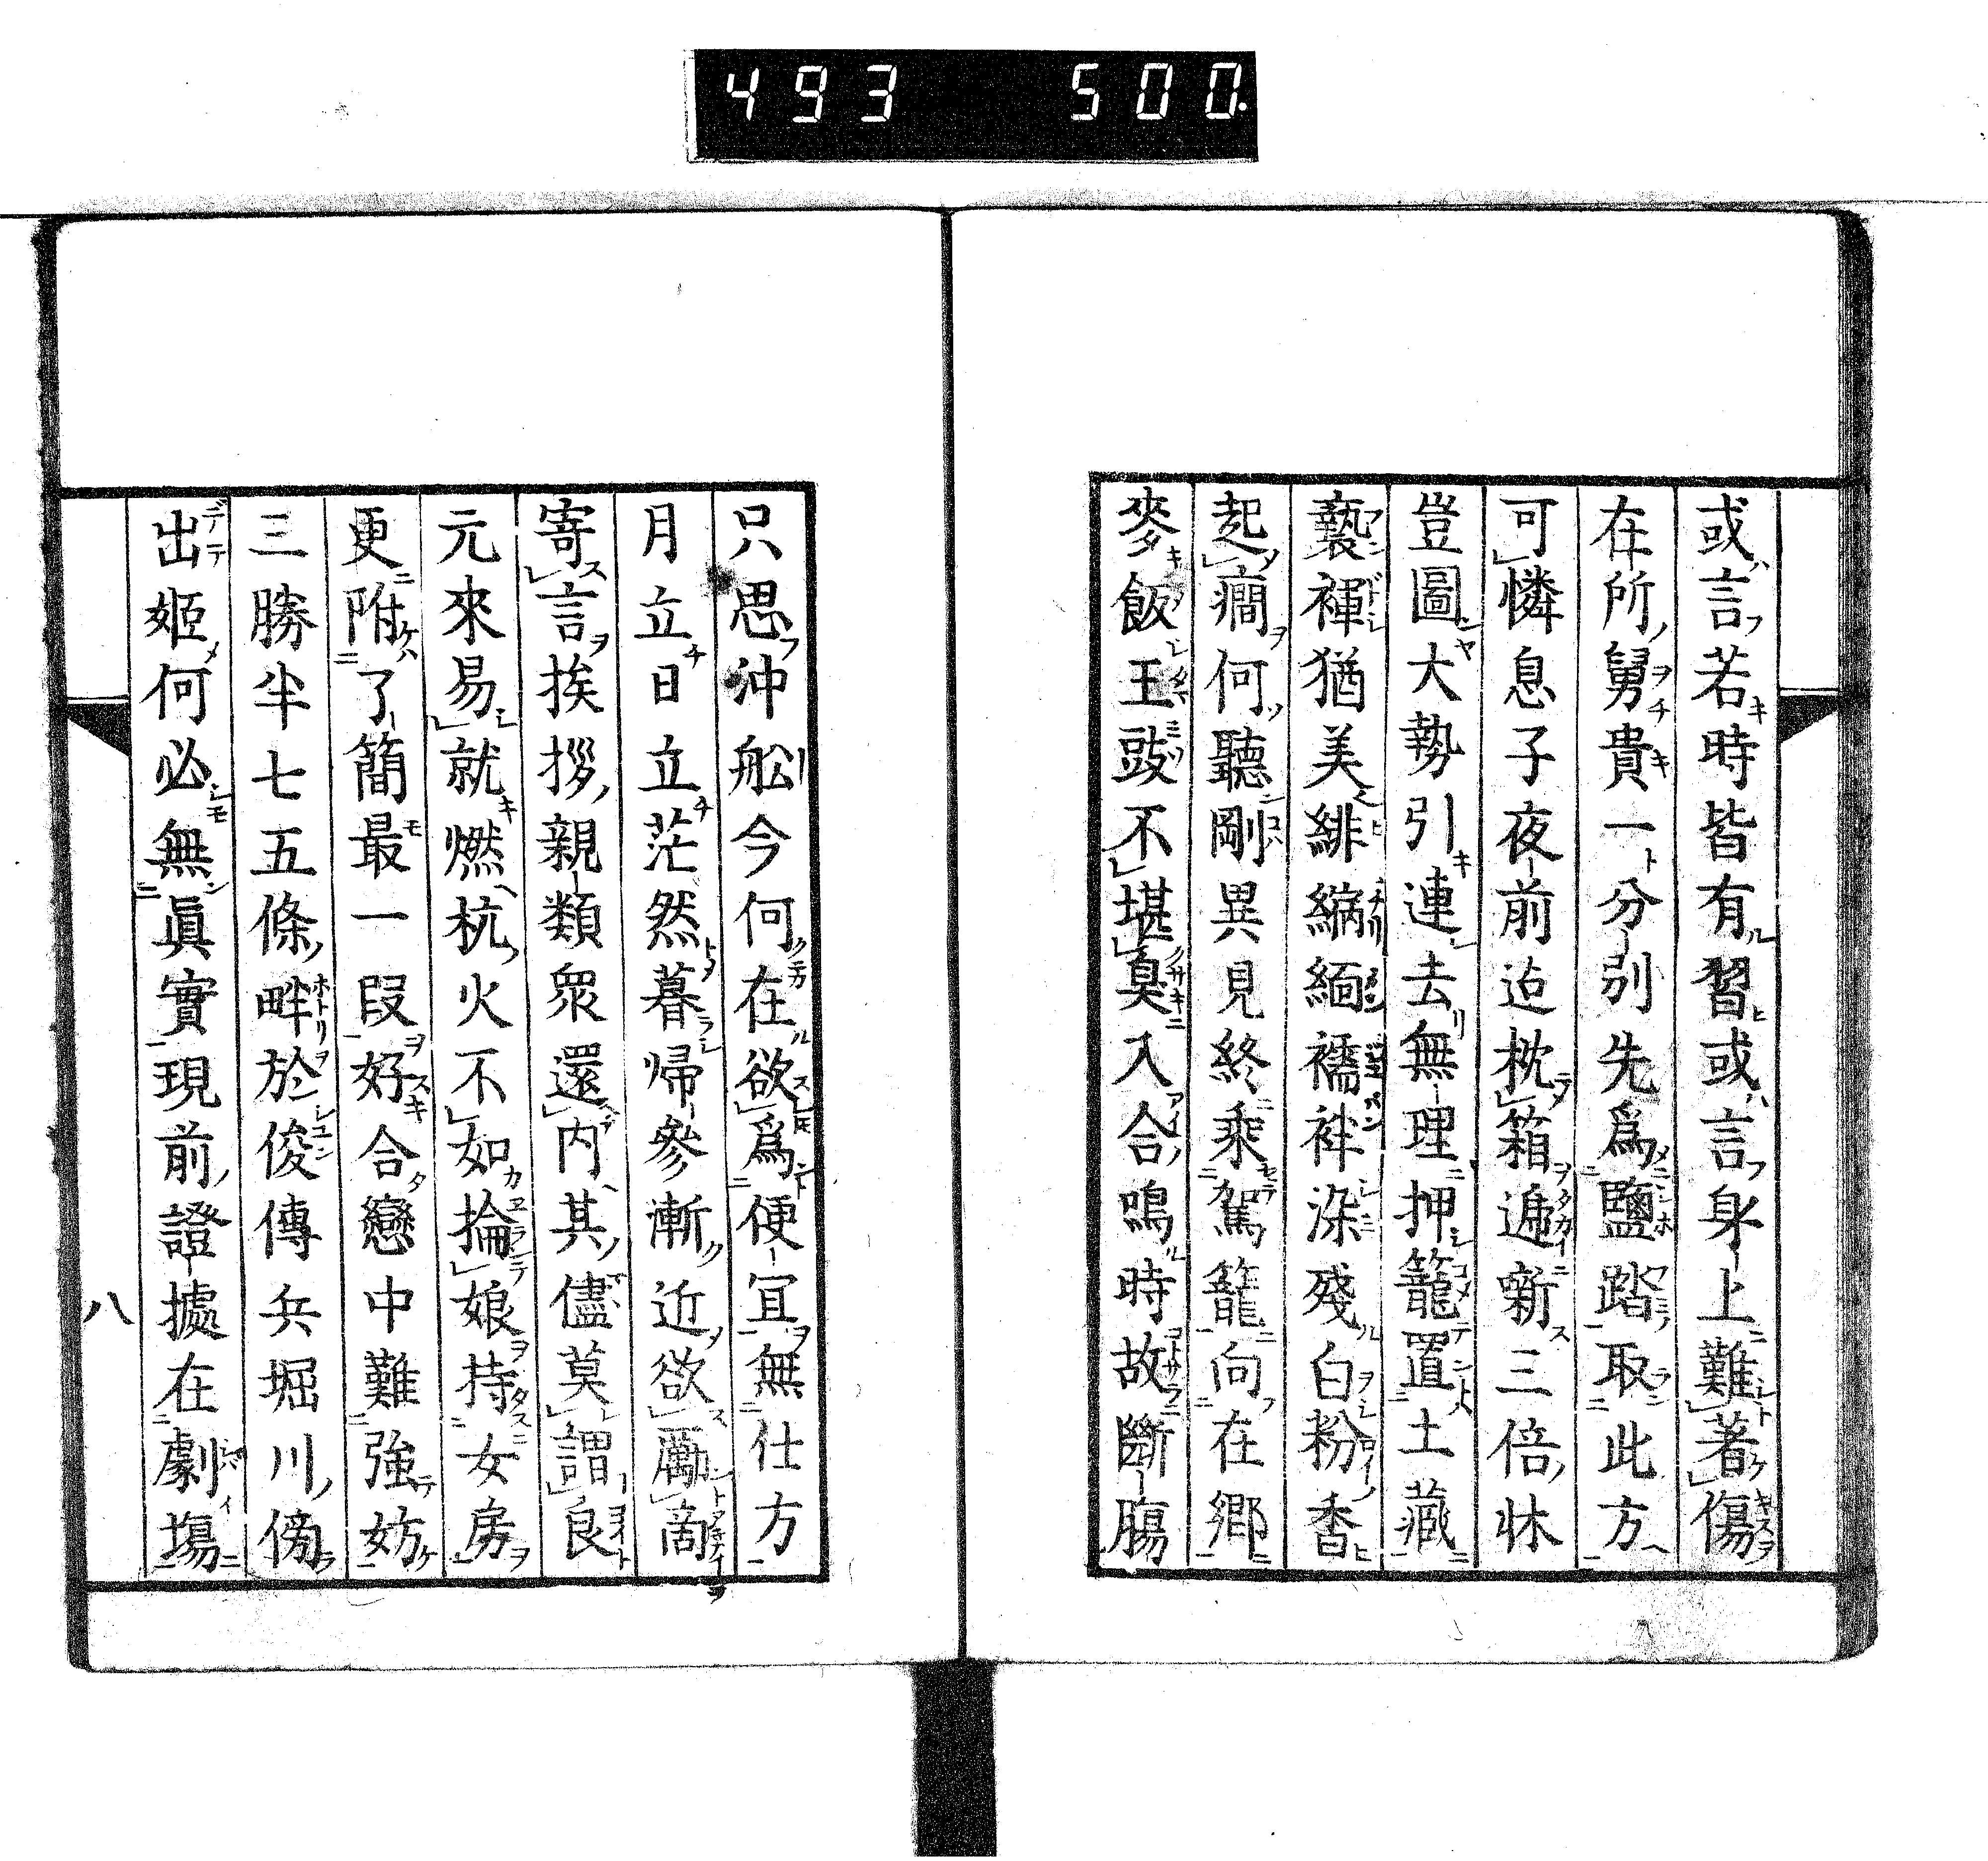 493 500.
或言若時皆有習或言身上難著傷
在所舅貴一分別先爲鹽踏取此方
可憐息子夜前迨枕箱逓噺三倍牀
豈圖大勢引連去無理押籠置土藏
褻褌猶美緋縮緬襦袢染殘白粉香
起癇何聽剛異見終乘駕籠向在郷
麥飯王豉不堪臭入合鳴時故斷膓
只思沖舩今何在欲爲便宜無仕方
月立日立茫然暮帰參漸近欲勵啇
寄言挨拶親類衆還内其儘莫謂良
元來易就燃杭火不如掄娘持女房
更附了簡最一段好合戀中難強妨
三勝半七五條畔於俊傳兵堀川傍
出姬何必無眞實現前證據在劇塲
八